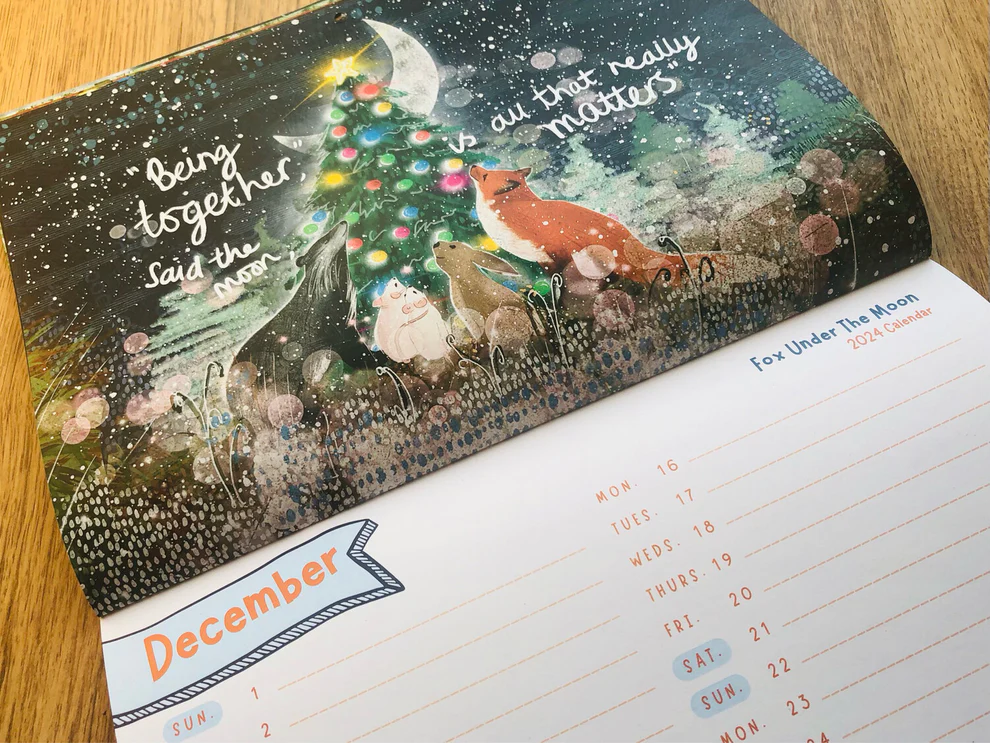 "Being
together,"
said the
moon,
"is all that really
matters"
Fox Under The Moon
2024 Calendar
December
SUN. 1
2
MON. 16
TUES. 17
WEDS. 18
THURS. 19
FRI. 20
SAT. 21
SUN. 22
MON. 23
24